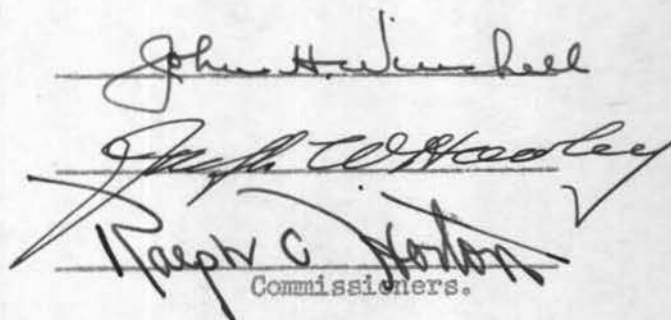 John H. Winchell
Joseph W. Hawley
Ralph C Horton
Commissioners.